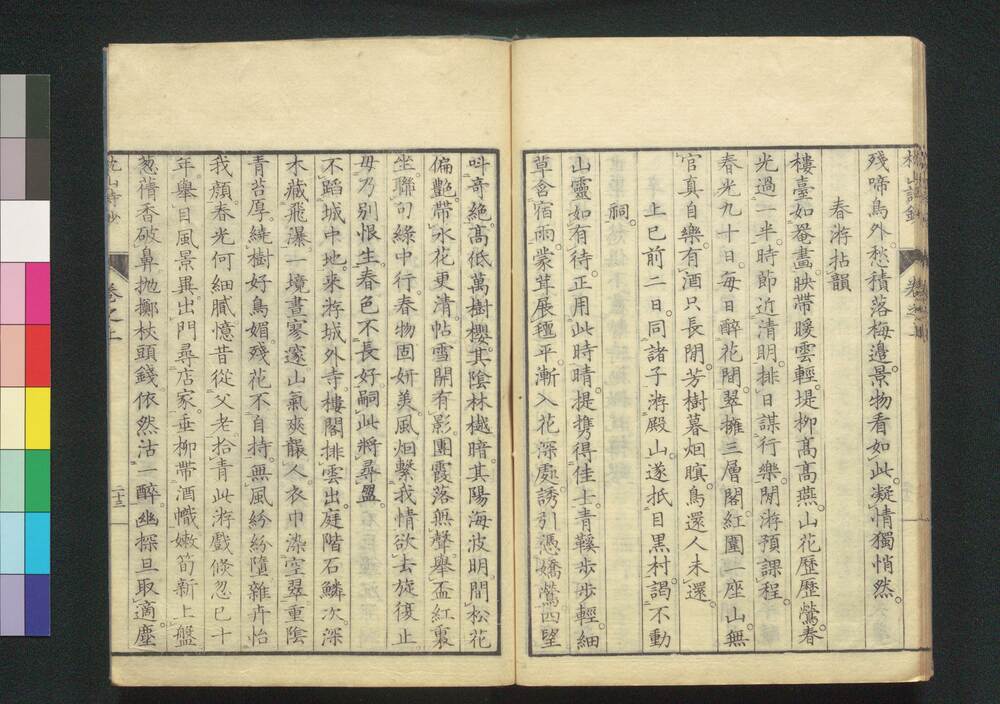 殘啼鳥外愁積落梅邉景物看如此凝情獨悄然
春游拈韻
樓臺如罨畫映帶暖雲輕堤柳髙髙燕山花歷歷鶯春
光過一半時節近清明排日謀行樂閒游預課程
春光九十日每日醉花閒翠擁三層閣紅圍一座山無
官真自樂有酒只長閒芳樹暮烟暝鳥還人未還
上巳前二日同諸子游殿山遂抵目黒村謁不動
祠
山靈如有待正用此時晴提携得佳士青鞵歩歩輕細
草含宿雨蒙茸展氊平漸入花深處誘引憑嬌鶯四望
叫奇絶髙低萬樹櫻其陰林樾暗其陽海波明間松花
偏艷帶水花更清帖雪開有影團霞落無聲舉盃紅裏
坐聯句綠中行春物固妍美風烟繫我情欲去旋復止
毋乃別恨生春色不長好嗣此將尋盟
不蹈城中地来游城外寺樓閣排雲出庭階石鱗次深
木藏飛瀑一境晝寥邃山氣爽襲人衣巾染空翠重陰
青苔厚繞樹好鳥媚殘花不自持無風紛紛墮雜卉怡
我顔春光何細膩憶昔從父老拾青此游戲倐忽已十
年舉目風景異出門尋店家垂柳帶酒幟嫩筍新上盤
葱蒨香破鼻抛擲杖頭錢依然沽一醉幽探旦取適塵
卷之上
二十三